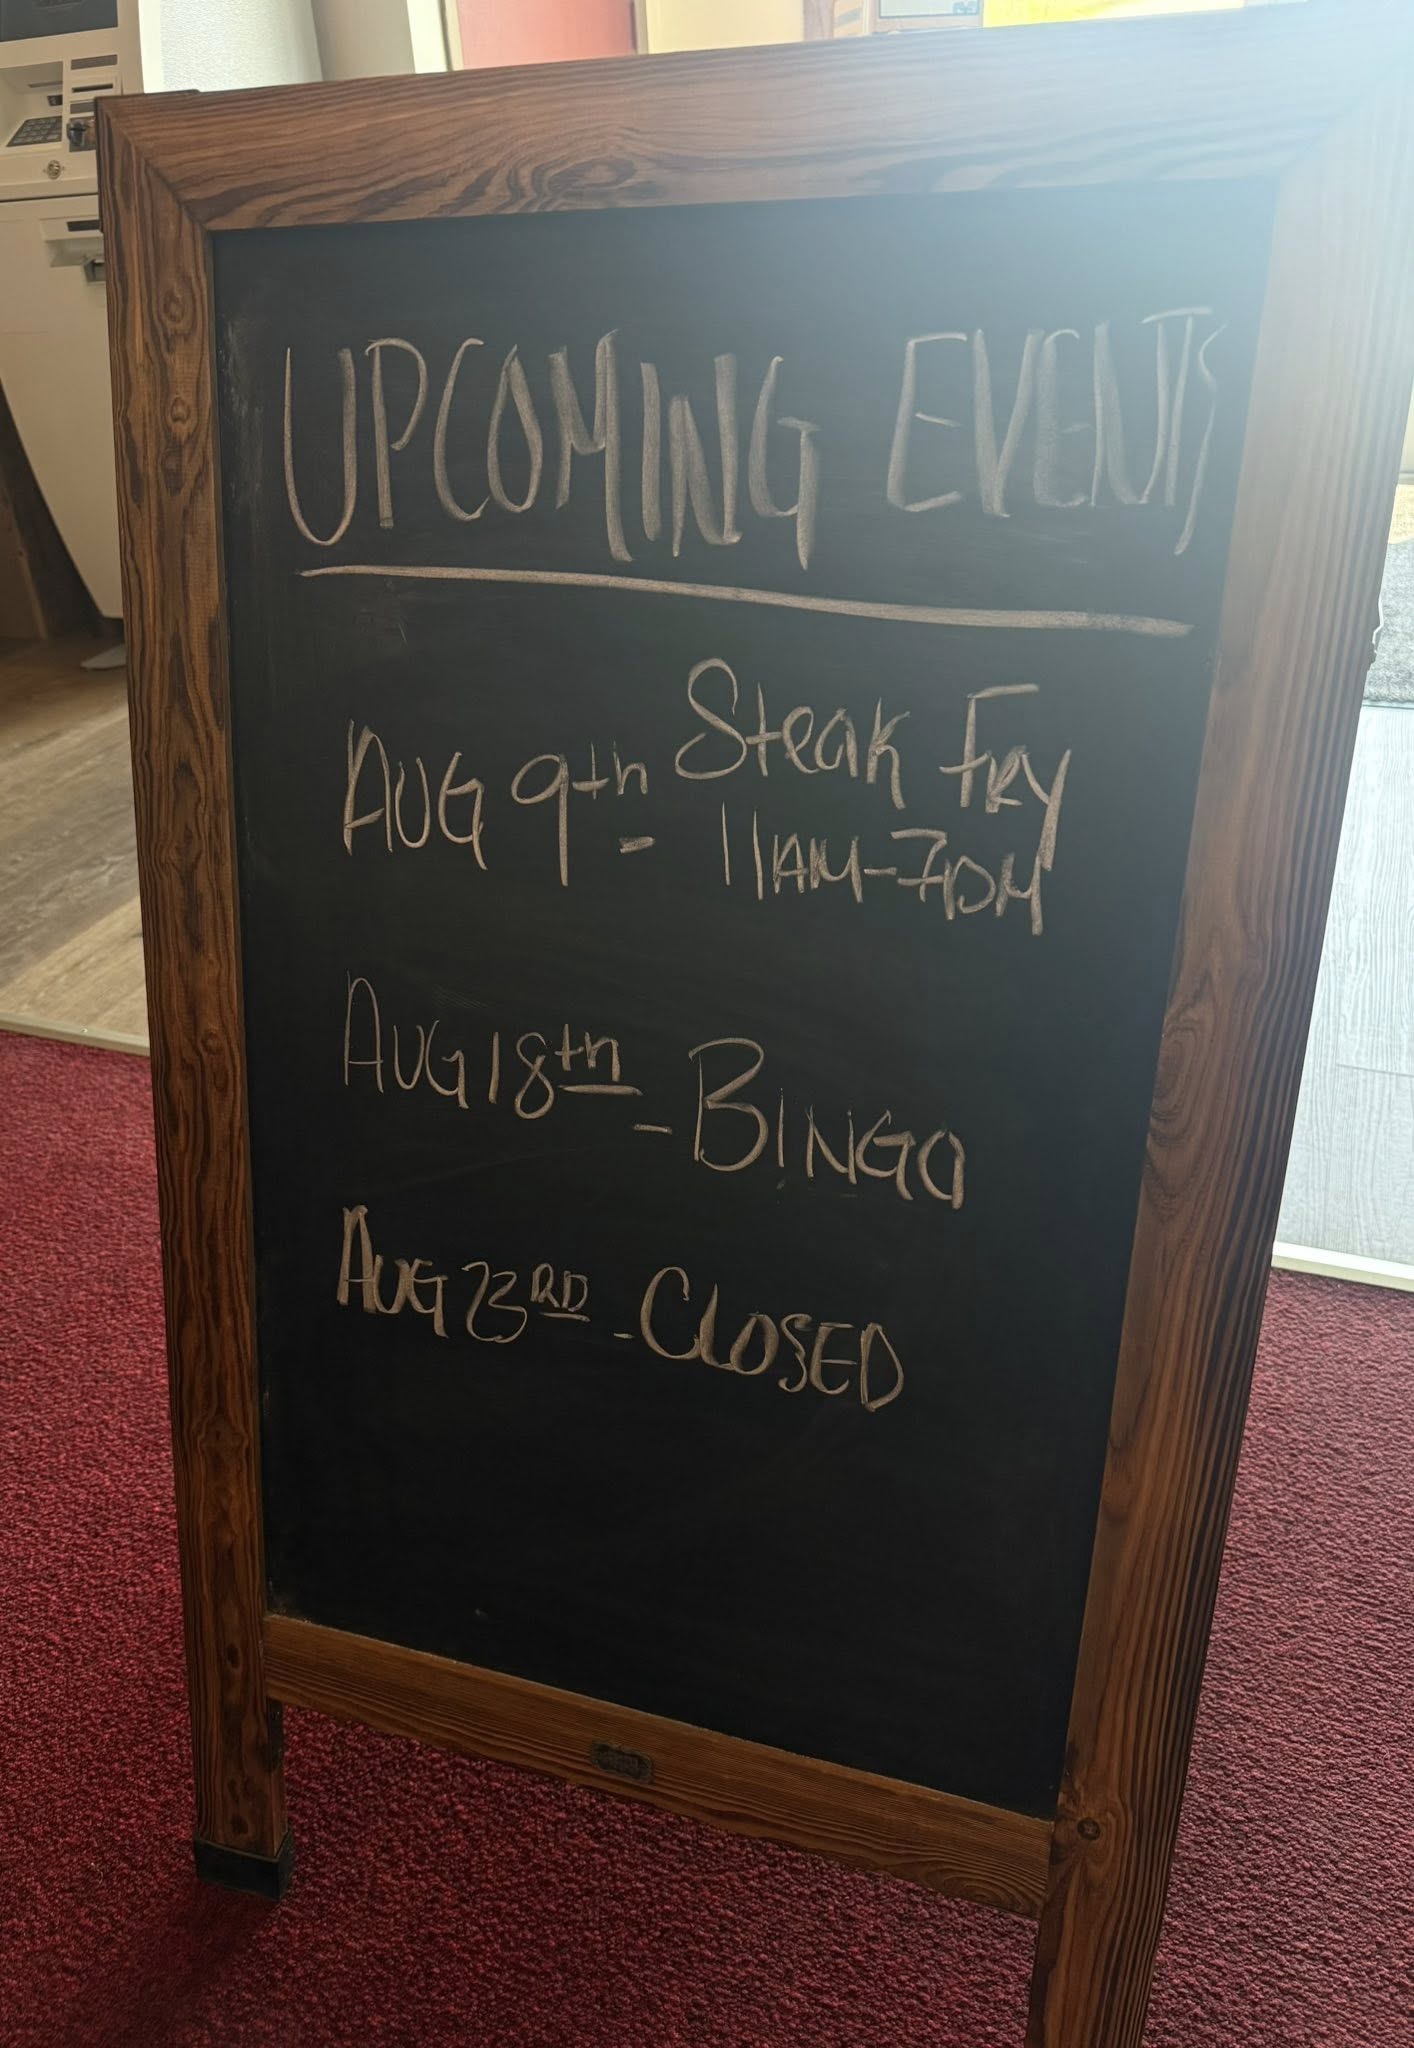 UPCOMING EVENTS
AUG 9th - Steak Fry
11AM-7PM
AUG 18th - BINGO
AUG 23RD - CLOSED